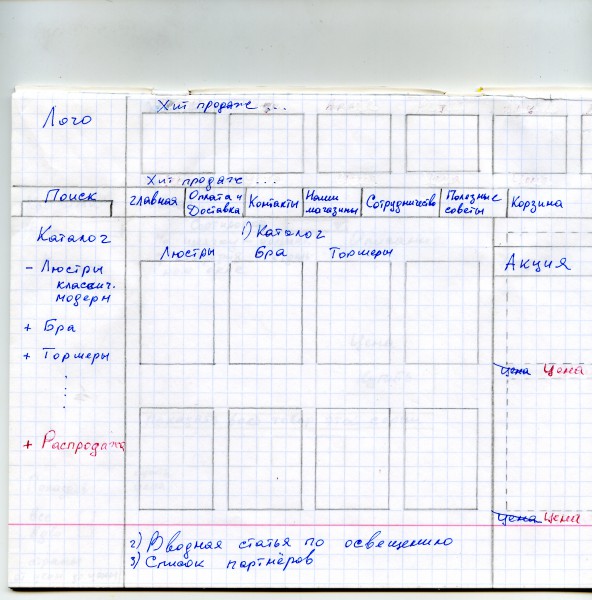 Лого
Хит продаж ...
Хит продаж ...
Поиск
Главная
Оплата и
Доставка
Контакты
Наши
магазины
Сотрудничество
Полезные
советы
Корзина
Каталог
- Люстры
классич.
модерн
+ Бра
+ Торшеры
+ Распродажа
1) Каталог
Люстры Бра Торшеры
Акция
цена Цена
цена Цена
2) Вводная статья по освещению
3) Список партнёров